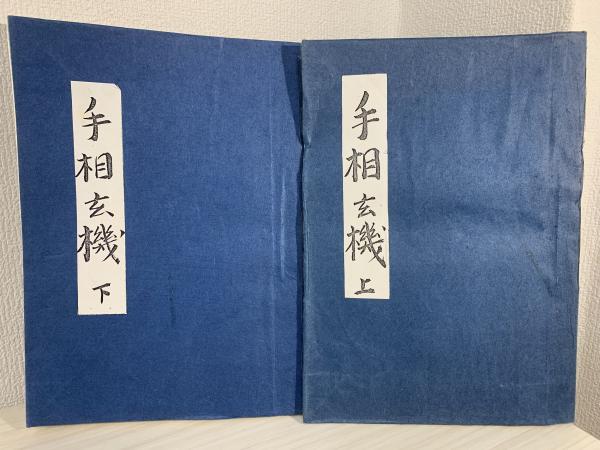 手相玄機 上
手相玄機 下